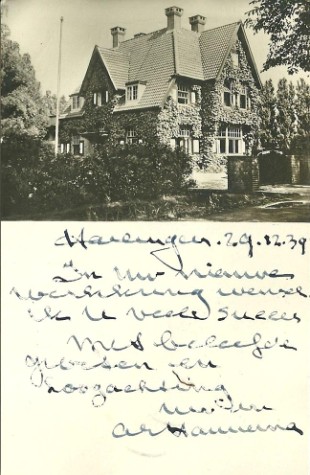 29.12.39
In Uw nieuwe
werkkring wensch
ik U veel succes
Met beleefde
groeten en
hoogachting